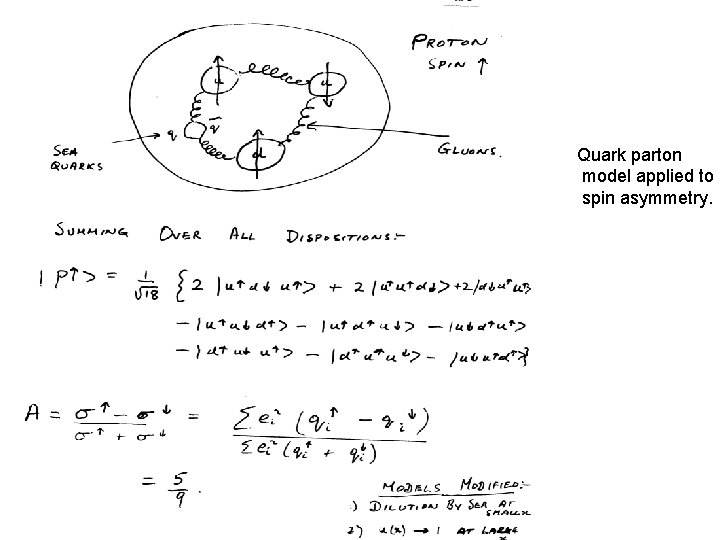 PROTON
SPIN ↑
u
u
q q̄
d
SEA
QUARKS
GLUONS.
Quark parton
model applied to
spin asymmetry.
SUMMING OVER ALL DISPOSITIONS:-
|P↑> = 1/√18 { 2 |u↑d↓u↑> + 2 |u↑u↑d↓> +2|d↓u↑u↑>
-|u↑u↓d↑> - |u↑d↑u↓> - |u↓d↑u↑>
-|d↑u↓u↑> - |d↑u↑u↓> - |u↓u↑d↑>}
A = σ↑ - σ↓ / σ↑ + σ↓ = Σei² (qi↑ - qi↓) / Σei² (qi↑ + qi↓)
= 5/9 .
MODELS MODIFIED:-
1) DILUTION BY SEA AT SMALL x
2) (x) → 1 AT LARGE x